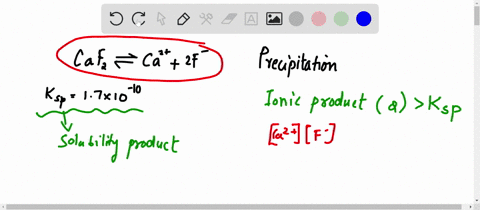 CaF₂ ⇌ Ca²⁺ + 2F⁻
Ksp = 1.7×10⁻¹⁰
Solability product
Precipitation
Ionic product (Q) > Ksp
[Ca²⁺][F⁻]